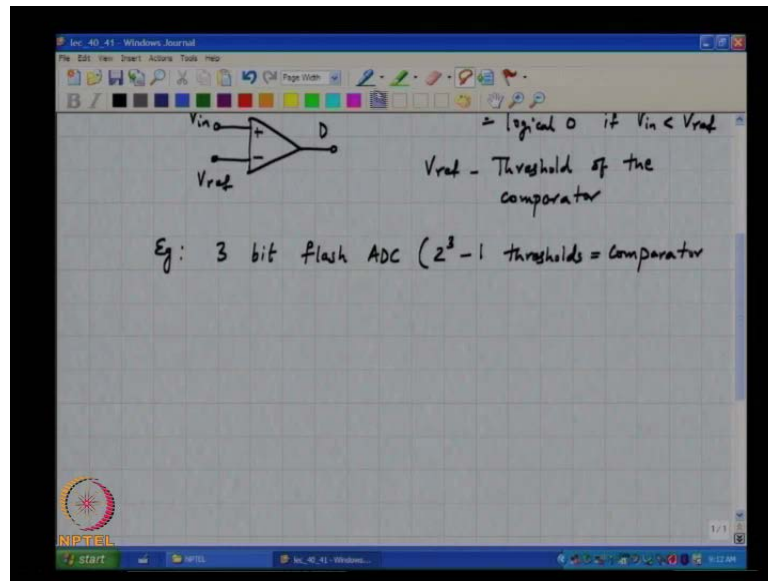 lec_40_41 - Windows Journal
File Edit View Insert Actions Tools Help
Page Width
B I
Vin + D = logical 0 if Vin < Vref
Vref -
Vref - Threshold of the
comparator
Eg: 3 bit flash ADC (2³ - 1 thresholds = comparator
1/1
NPTEL
start NPTEL lec_40_41 - Windows... 9:12 AM